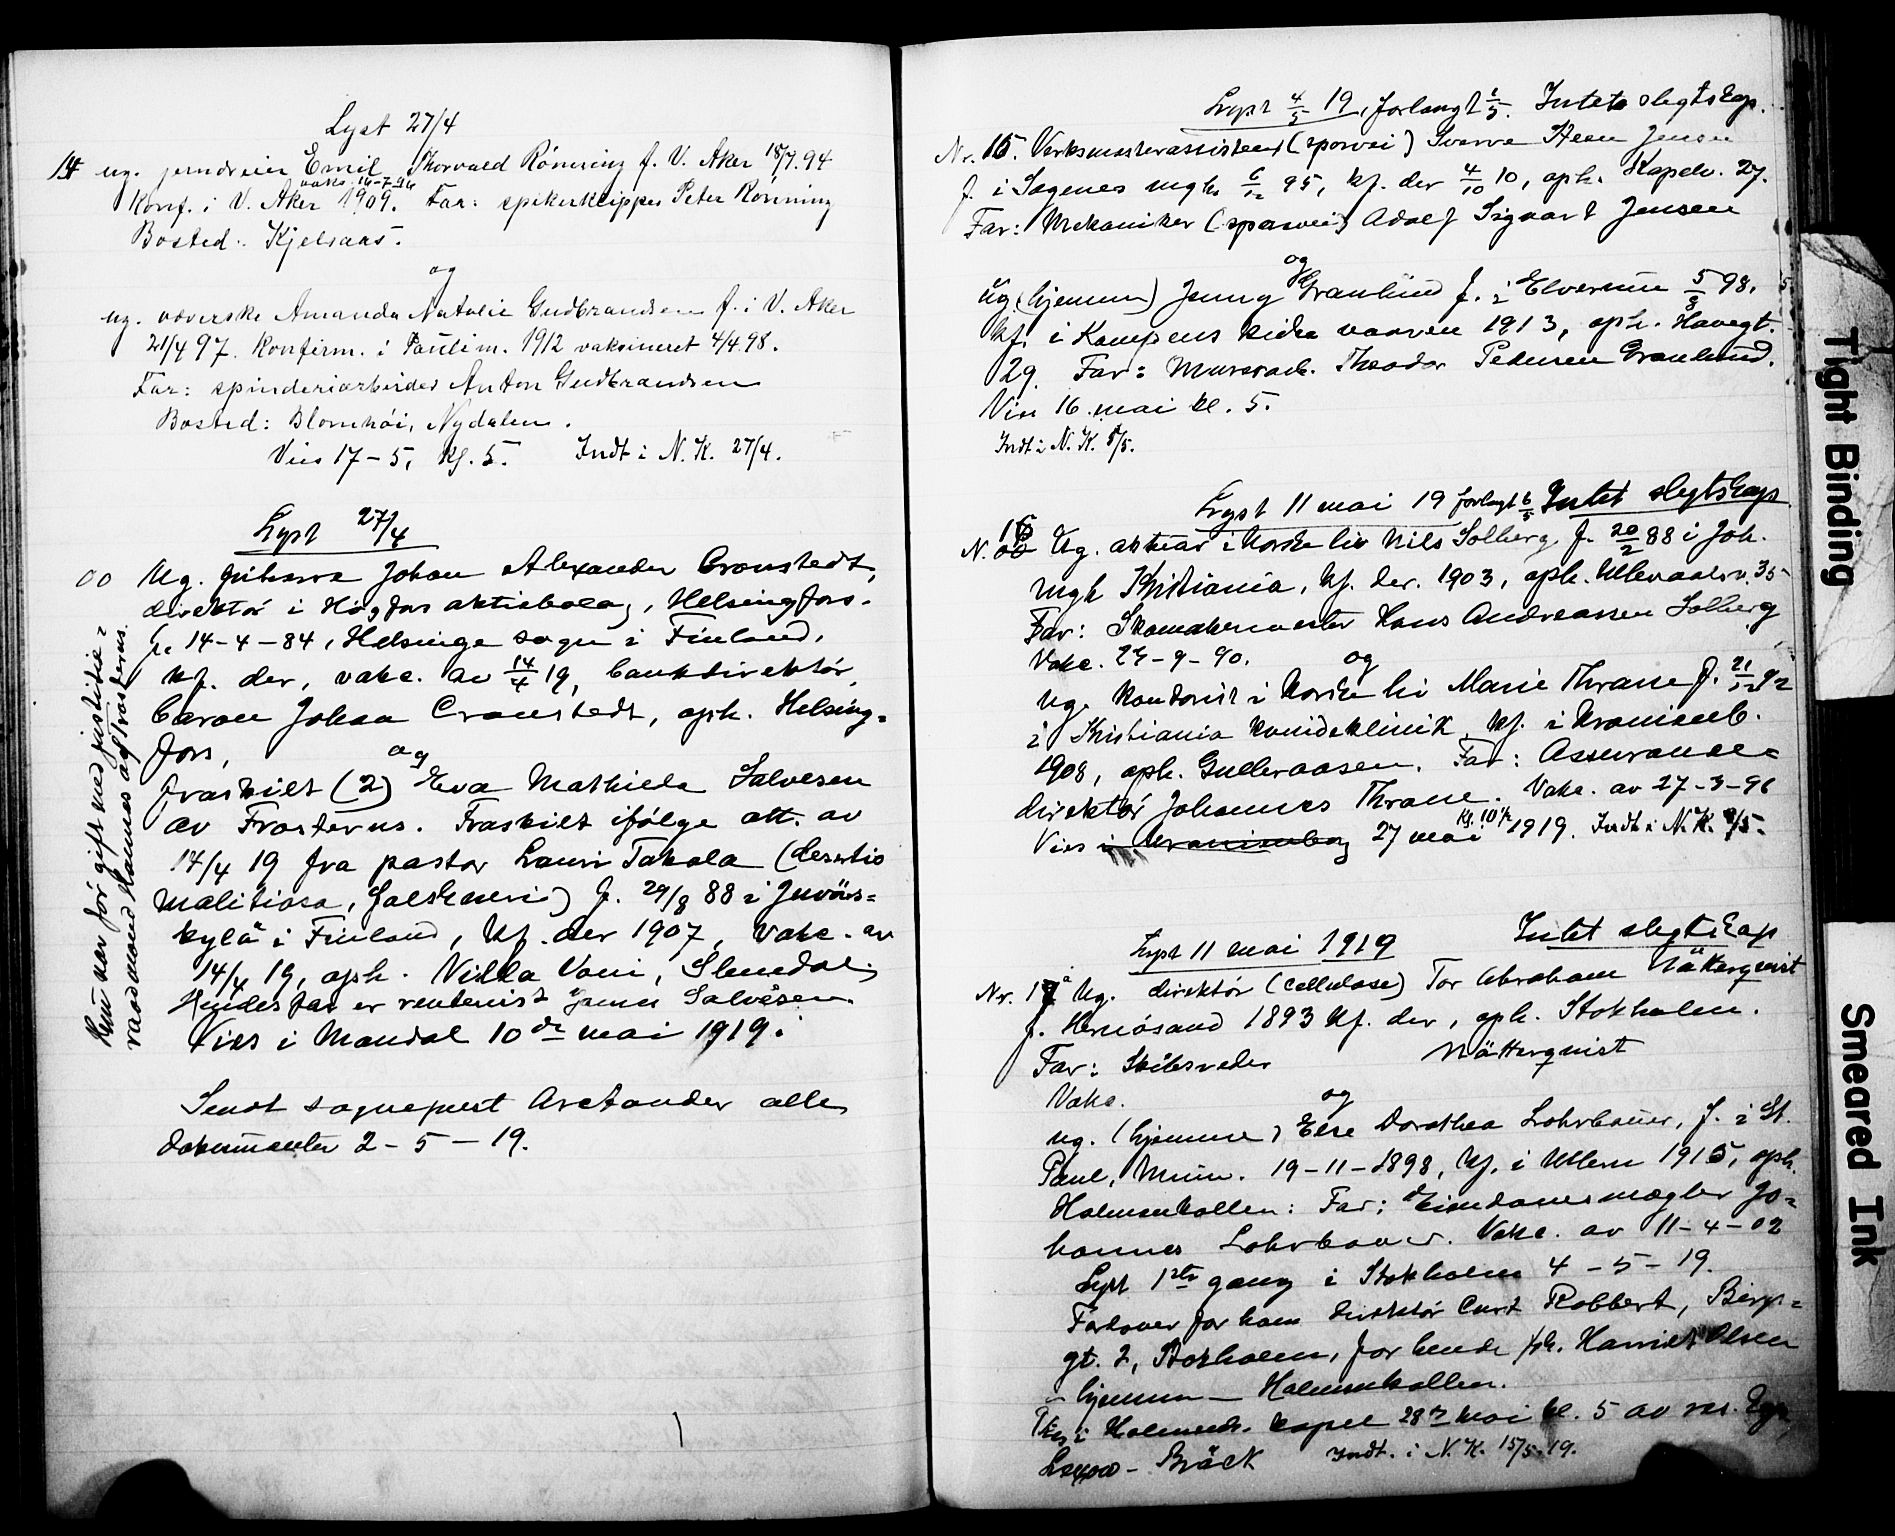 Lyst 27/4
14 ug. jerndreier Emil Thorvald Rönning f. V. Aker 18/7.94
vaks. 16-7-96
Konf. i V. Aker 1909. Far: spikerklipper Peter Rönning
Bosted: Kjelsaas.
og
ug. væverske Amanda Natalie Gudbrandsen f. i V. Aker
21/4 97. Konfirm. i Paulim. 1912 vaksineret 4/4.98.
Far: spinderiarbeider Anton Gudbrandsen
Bosted: Blomhøi, Nydalen.
Vies 17-5, kl. 5. Indt i N. K. 27/4.
Lyst 27/4
00 Ug. Johan Alexander Cronstedt,
direktør i Högfors aktiebolag, Helsingfors.
f. 14-4-84, Helsinge sogn i Finland,
kf. der, vakc. av 14/4 19, bankdirektør,
baron Johan Cronstedt, oph. Helsing=
fors,
og
fraskilt (2) Eva Mathilda Salvesen
av Frosterus. Fraskilt ifølge att. av
14/4 19 fra pastor Lauri Takala (desertio
malitiosa, ) f. 29/8 88 i Jyväs=
kylä i Finland, kf. der 1907, vakc. av
14/4 19, oph. Villa Voni, Slemdal.
Hendes far er rentenist James Salvesen.
Vies i Mandal 10de mai 1919.
Hun var før gift med justitie=
raadmand Hannes af Frosterus.
Sendt sogneprest Arctander alle
dokumenter 2-5-19.
Lyst 4/5 19, forlangt 1/5. Intet slegtskap.
Nr. 15. Verksmesterassistent (sporvei) Sverre Steen Jensen
f. i Sagenes mgh. 6/12 95, kf. der 4/10 10, oph. Kapelv. 27.
Far: Mekaniker (sporvei) Adolf Sigvart Jensen
og
Ug. (hjemme) Jenny Granlund f. i Elverum 5/8 98.
kf. i Kampens kirke vaaren 1913, oph. Havegt.
29. Far: Murerarb. Theodor Pedersen Granlund.
Vies 16. mai kl. 5.
Indt i N. K. 5/5.
Lyst 11 mai 19 forlangt 6/5 Intet slegtskap
N. 16 Ug. aktuar i Norske liv Nils Solberg f. 20/2 88 i Joh.
mgh Kristiania, kf. der. 1903, oph. Ullevaalsv. 35
Far: Skomakermester Hans Andreassen Solberg
Vakc. 29-9-90.
og
ug. kontorist i Norske liv Marie Thrane f. 21/12 92
i Kristiania kvindeklinik, kf. i Uranienb.
1908, oph. Gulleraasen. Far: Assurance=
direktør Johannes Thrane. Vakc. av 27-3-96
Vies i Uranienborg 27 mai kl. 10 1/2 1919. Indt i N. K. 9/5.
Lyst 11 mai 1919 Intet slegtskap
Nr. 17 Ug. direktør (cellulose) Tor Abraham Nätterqvist
f. Hernösand 1893 kf. der, oph. Stokholm.
Far: Skibsreder Nätterqvist
Vakc.
og
ug. (hjemme) Else Dorothea Lohrbauer, f. i St.
Paul, Minn. 19-11-1898, kf. i Ullern 1915, oph.
Holmenkollen: Far: Eiendomsmægler Jo=
hannes Lohrbauer. Vakc. av 11-4-02
Lyst 1ste gang i Stokholm 4-5-19.
Forlover for ham direktør Curt Robbert, Birger
gt. 2, Stokholm, for hende frk. Harriet Olsen
– hjemme – Holmenkollen.
Vies i Holmenk. kapel 28de mai kl. 5 av res. kap.
Lexow- Bräck Indt. i N. K. 15/5-19.
Tight Binding
Smeared Ink